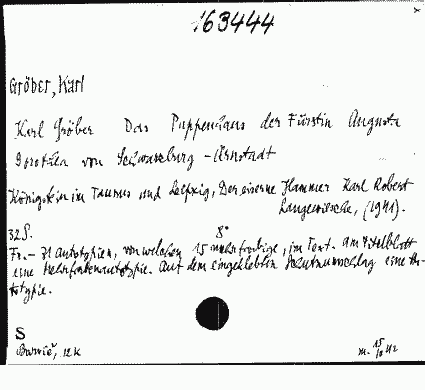 163444
Gröber, Karl
Karl Gröber Das Puppenhaus der Fürstin Augusta
Dorothea von Schwarzburg-Arnstadt
Königstein im Taunus und Leipzig, Der eiserne Hammer Karl Robert
Langewiesche, (1941).
32 S. 8°
Fr. - 31 autotypien, von welchen 15 mehrfarbige, im Text. Am Titelblatt
eine Mehrfarbenautotypie. Auf dem eingeklebten Schutzumschlag eine Au-
totypie.
S
12 K
15